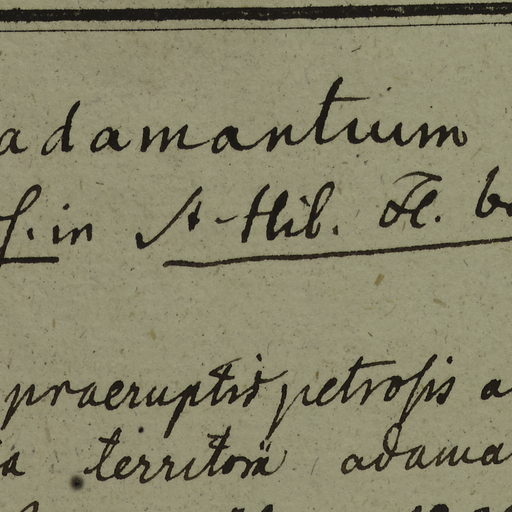 adamantium
f. in St-Hil. Fl. b
praeruptis petrosis a
ia territorii adama